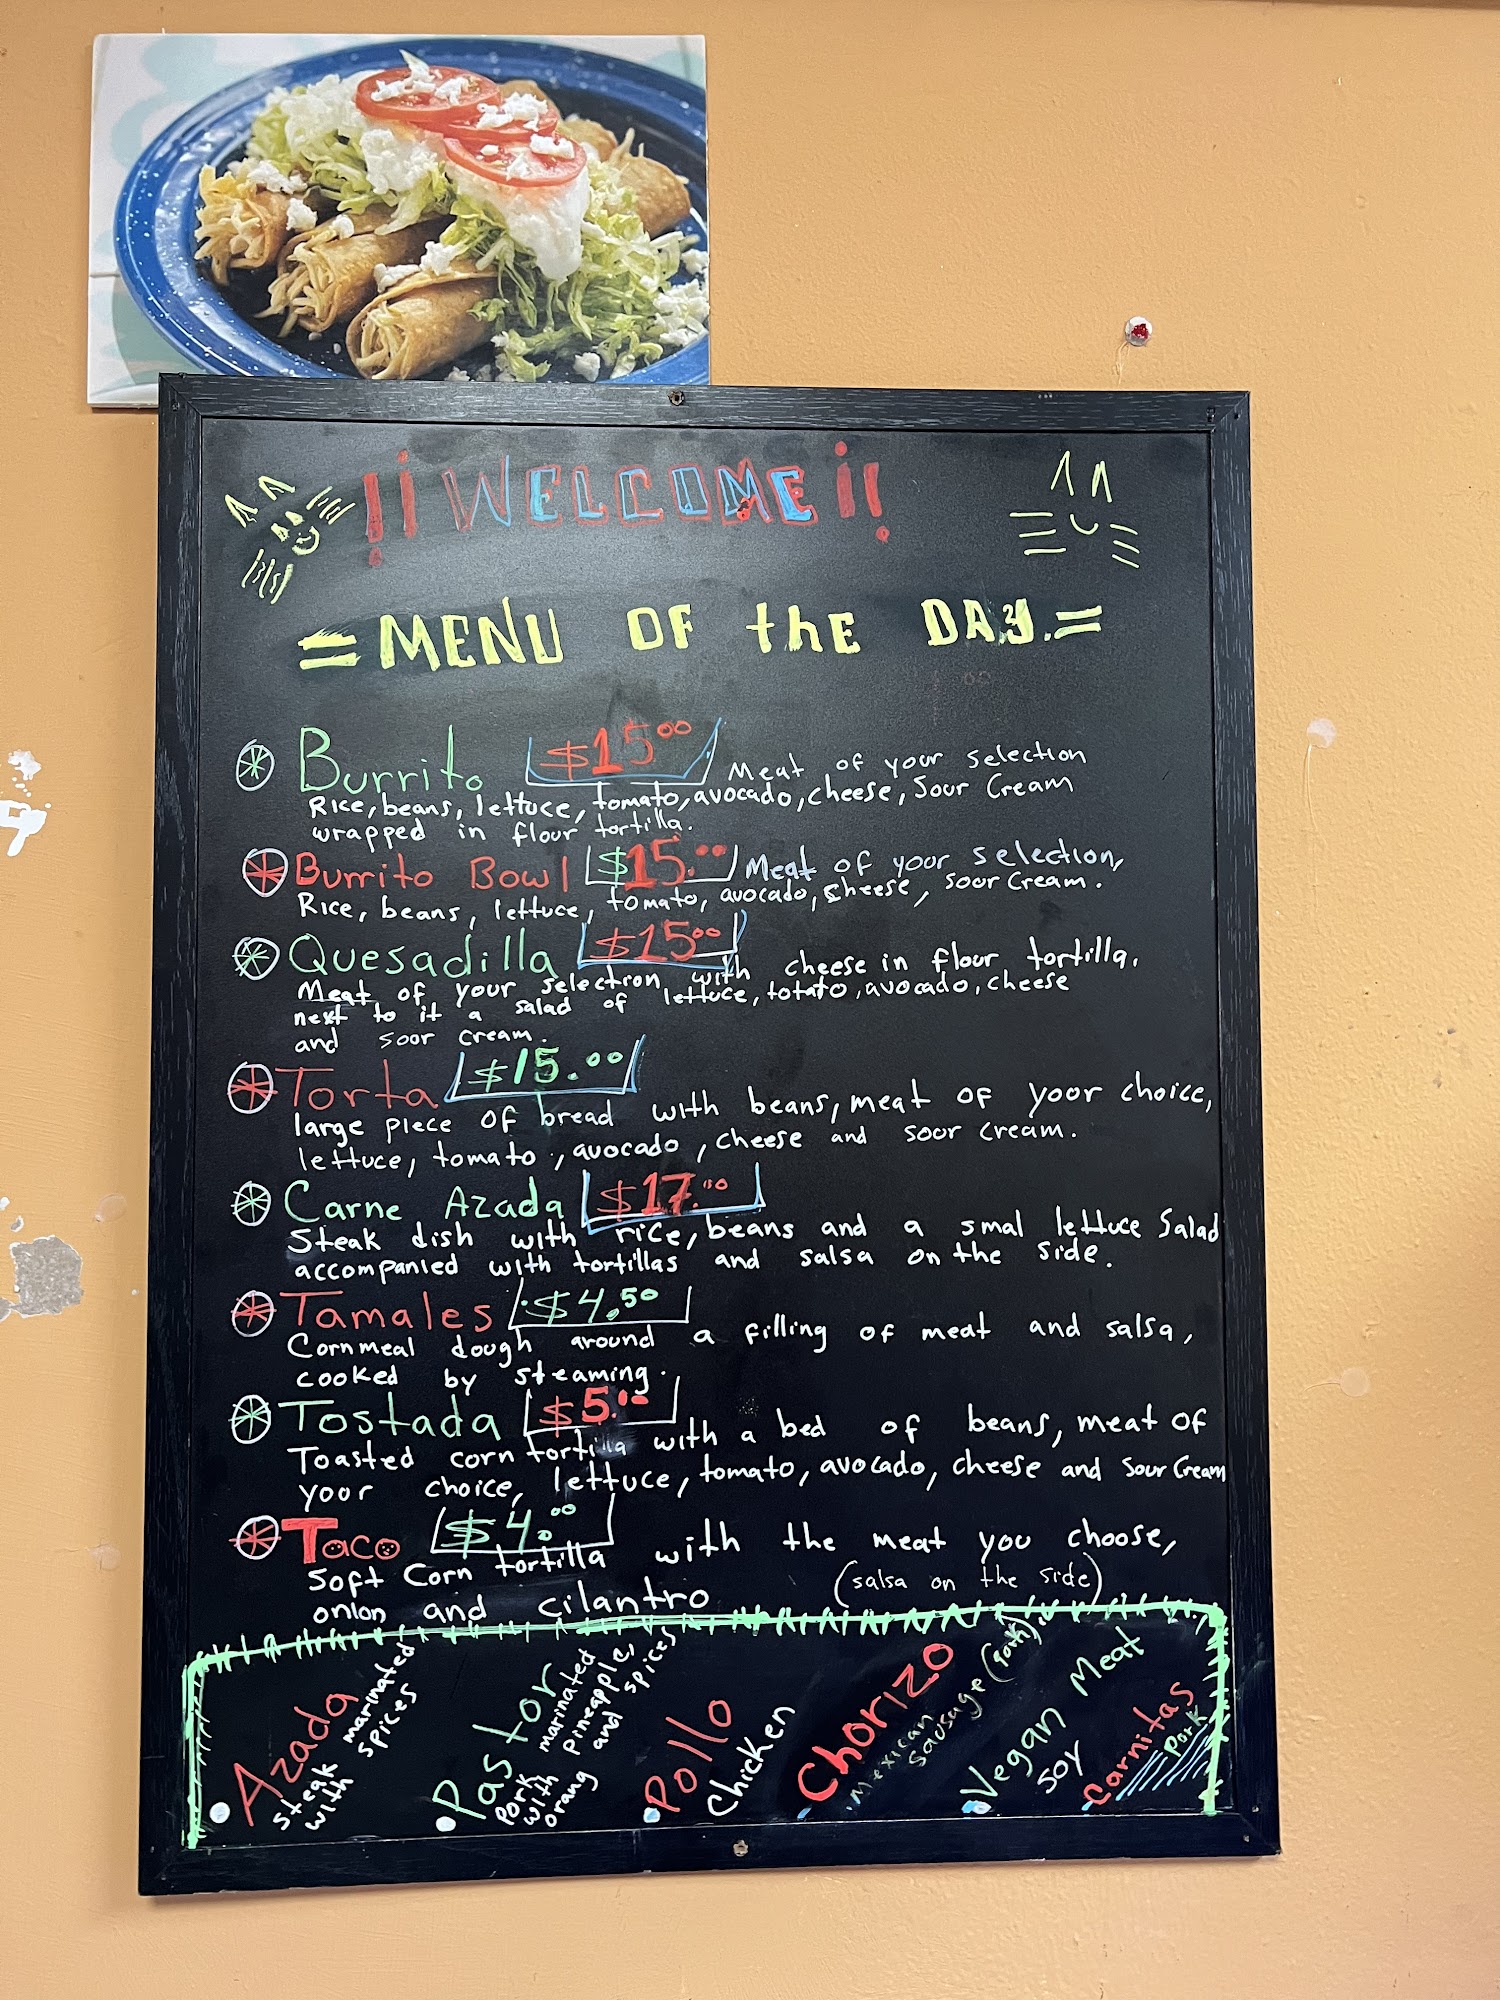 !¡ WELCOME ¡!
= MENU OF the DAY. =
Burrito $15.00 Meat of your selection
Rice, beans, lettuce, tomato, avocado, cheese, Sour Cream
wrapped in flour tortilla.
Burrito Bowl $15.00 Meat of your selection,
Rice, beans, lettuce, tomato, avocado, cheese, sour Cream.
Quesadilla $15.00
Meat of your selection with cheese in flour tortilla.
next to it a salad of lettuce, totato, avocado, cheese
and sour cream.
Torta $15.00
large piece of bread with beans, meat of your choice,
lettuce, tomato, avocado, cheese and sour cream.
Carne Azada $17.00
Steak dish with rice, beans and a smal lettuce Salad
accompanied with tortillas and salsa on the side.
Tamales $4.50
Cornmeal dough around a filling of meat and salsa,
cooked by steaming.
Tostada $5.00
Toasted corn tortilla with a bed of beans, meat of
your choice, lettuce, tomato, avocado, cheese and Sour Cream
Taco $4.00
Soft Corn tortilla with the meat you choose,
onion and cilantro (salsa on the side)
Azada
steak marinated
with spices
Pastor
Pork marinated
with pineapple,
orang and spices
Pollo
Chicken
Chorizo
Mexican
sausage (Pork)
Vegan Meat
Soy
Carnitas
Pork